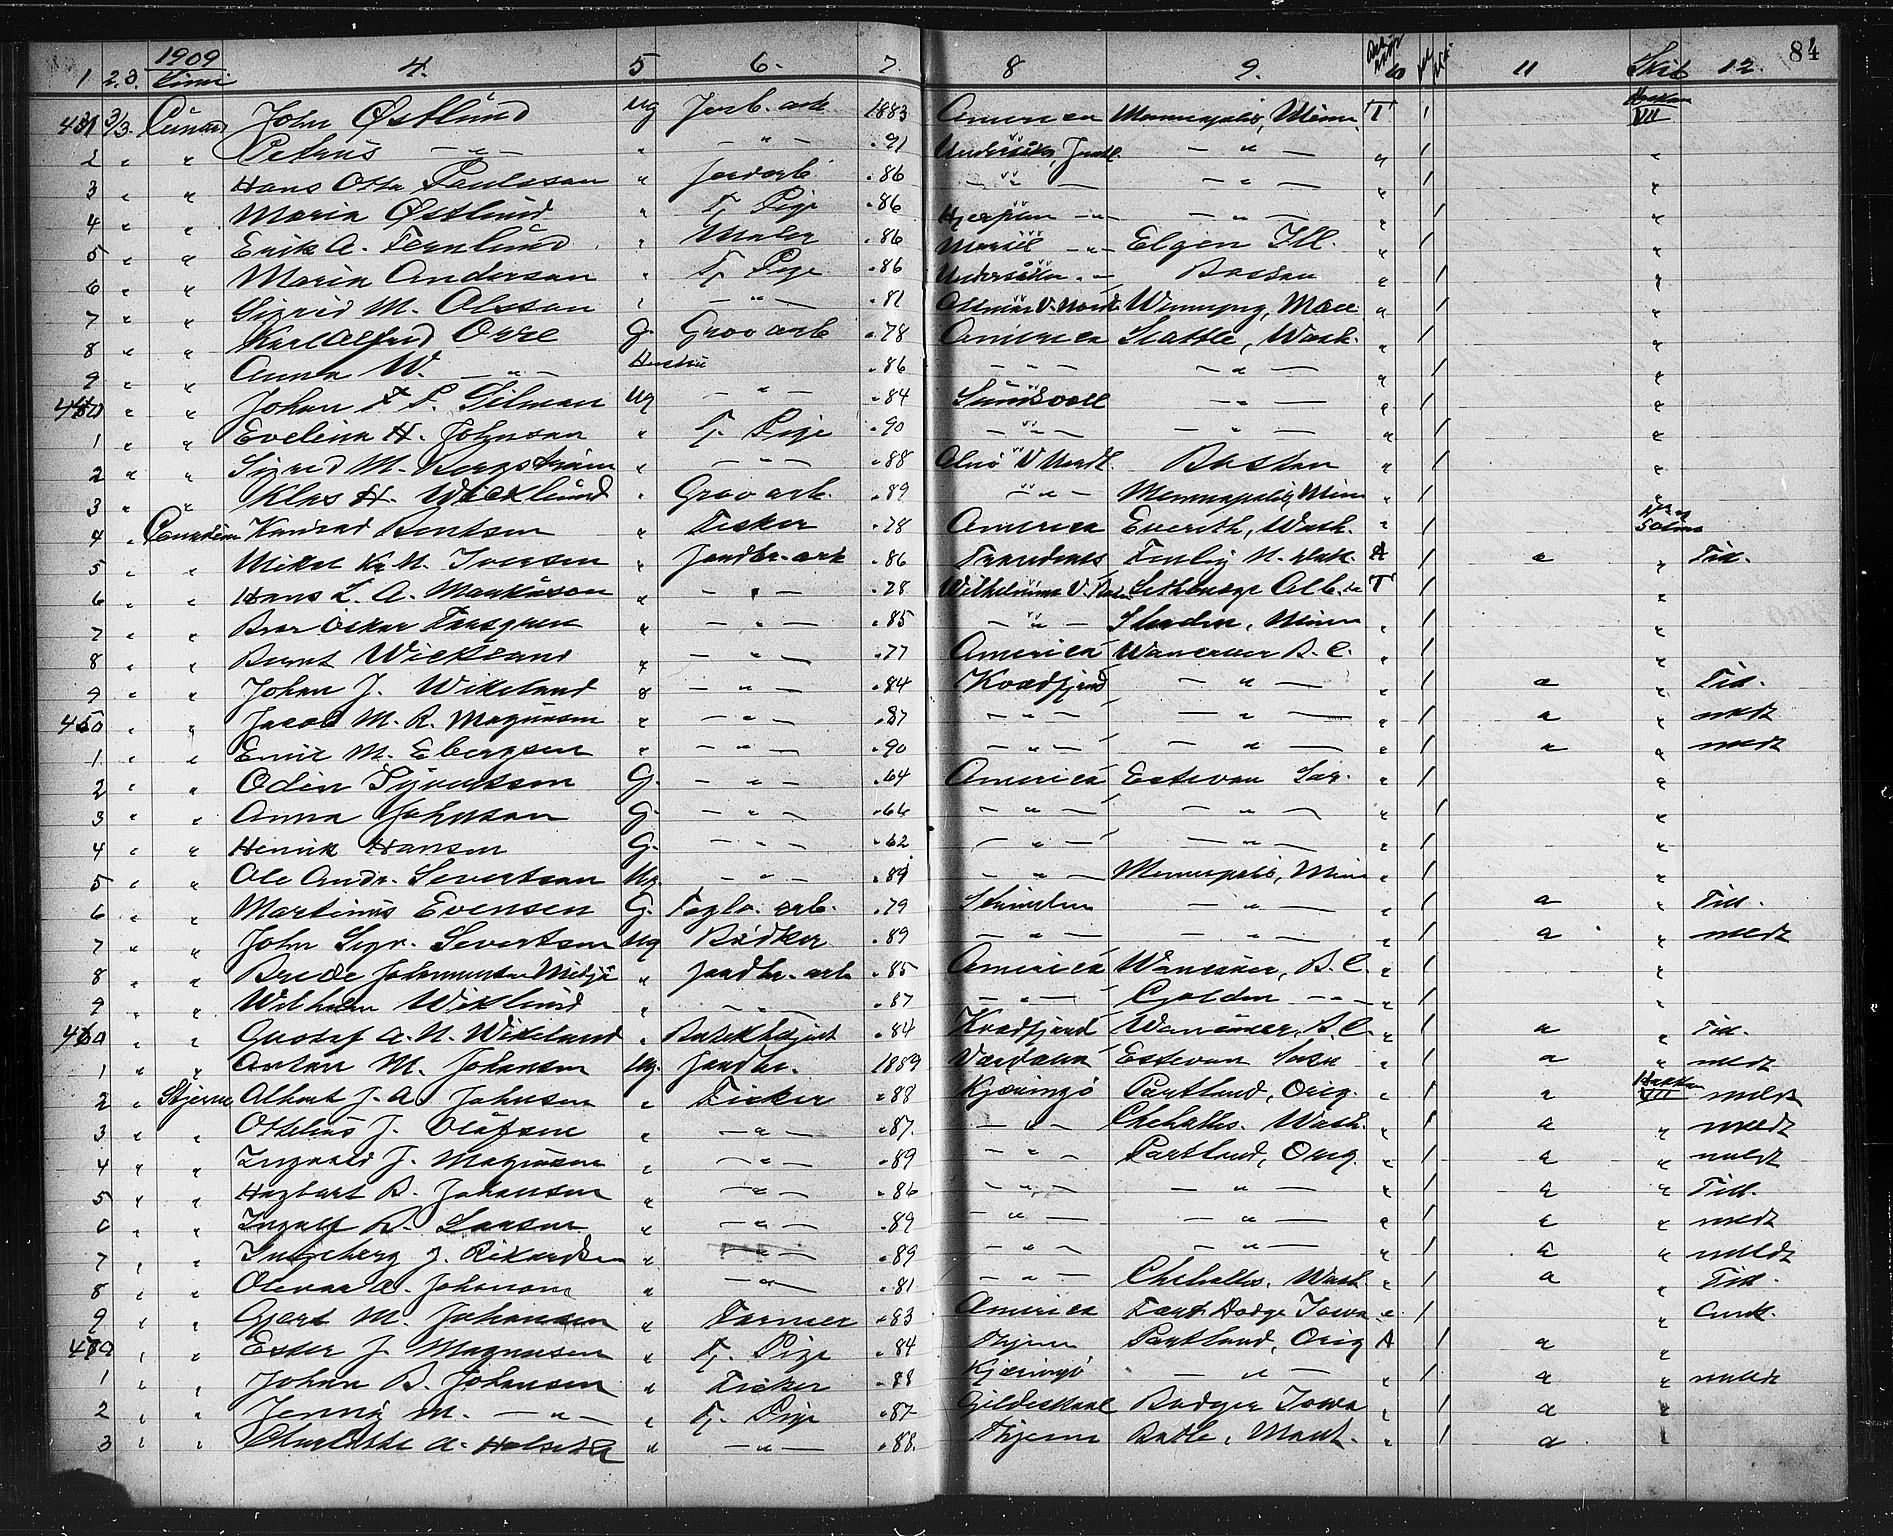 1909 84
1 2. 3. Linie 4. 5 6. 7 8 9. 10 11 Skib 12.
431 3/3. Cunard John Østlund Ug Jordb. arb. 1883 America Minneapolis, Minn. T 1 Haakon VII
2 " " Petrus — " — " — " — " 91 Undersåker, Jemtl. — " — " 1 "
3 " " Hans Otto Paulsson " Jordarb " 86 — " — — " — " 1 "
4 " " Maria Østlund " Tj. Pige " 86 Hjerpen — " — — " — " 1 "
5 " " Erik A. Fernlund " Maler " 86 Mørsil — " — Elgin Ill. " 1 "
6 " " Maria Anderson " Tj. Pige " 86 Undersåker — " — Boston " 1 "
7 " " Sigrid M. Olsson " — " — " 81 V. Nordl. Winnipeg, Man " 1 "
8 " " Karl Alfred Orre G. Grov arb " 78 America Seattle, Wash. " 1 "
9 " " Anna W. — " — Hustru " 86 — " — — " — " 1 "
440 " " Johan F. F. Gilman Ug " " 84 Sundsvall — " — " 1 "
1 " " Evelina H. Johnson " Tj. Pige " 90 — " — — " — " 1 "
2 " " Sigrid M. Bergstrøm " — " — " 88 Alnö V Nordl. Boston " 1 "
3 " " Klas H. Wicklund " Grov arb. " 89 — " — Minneapolis, Minn " 1 "
4 " Canadian Konrad Bentsen " Fisker " 78 America Everith, Wash. " 1
5 " " Mikal Kr. N. Iversen " Jordbr. arb " 86 Tranedenes N. Dak. A 1 a " Till.
6 " " Hans L. A. Markusson " — " — " 78 Wilhelmina V. Lethbridge Alb. T 1 "
7 " " Bror Oskar " — " — " 85 — " — Minn " 1 "
8 " " Bernt Wickland " — " — " 77 America Wancover B. C. " 1 "
9 " " Johan J. Wikeland " — " — " 84 Kvædfjord — " — " 1 a " Till.
450 " " Jacob M. R. Magnussen " — " — " 87 — " — — " — " 1 a " meldt
1 " " Emil M. Ebergsen " — " — " 90 — " — — " — " 1 a " meldt
2 " " Odin Syvertsen G. — " — " 64 America Estevan Sas. " 1 "
3 " " Anna Johnson G. — " — " 66 — " — — " — " 1 "
4 " " Henrik Hansen G. — " — " 62 — " — — " — " 1 "
5 " " Ole Andr. Severtsen Ug. — " — " 89 — " — Minneapolis, Minn " 1 "
6 " " Martinus Evensen G. Teglv. arb. " 79 Strinden — " — " 1 a " Till.
7 " " John Sigv. Severtsen Ug Bødker " 89 — " — — " — " 1 a " meldt
8 " " Brede Johannessen " Jordbr. arb " 85 America Wancover, B. C. " 1 "
9 " " Wilhelm Wiklund " — " — " 87 — " — Golden — " — " 1 "
460 " " Gustaf A. N. Wikeland " " 84 Kvædfjord Wancover, B. C. " 1 a " Till.
1 " " Anton M. Johansen Ug. Jordbr. 1889 Værdalen Estevan Sask " 1 a " meldt
2 " Stjerne Albert J. A. Johnsen " Fisker " 88 Kjæringø Portland, Orig. " 1 a Haakon VII meldt
3 " " Ottelius J. Olafsen " — " — " 87. — " — Chehalles. Wash. " 1 a " meldt
4 " " Ingvald J. Magnussen " — " — " 89 — " — Portland, Orig. " 1 a " meldt
5 " " Hagbart B. Johansen " — " — " 86 — " — — " — " 1 a " Till.
6 " " Ingolf B. Larsen " — " — " 89 — " — — " — " 1 a " meldt
7 " " Ingeborg J. Rikardsen " — " — " 89 — " — — " — " 1 a " meldt
8 " " A. Johansen " — " — " 81 — " — Chehalles, Wash " 1 a " Till.
9 " " Gjert M. Johansen " Farmer " 83 America Fort Dodge Iowa " 1 " Amk.
470 " " Ester J. Magnussen " Tj. Pige " 84 Portland, Orig A 1 a "
1 " " Johan B. Johansen " Fisker " 88 Kjæringø — " — " 1 a " meldt
2 " " Jenny M. — " — " Tj. Pige " 87 Gildeskaal Badger Iowa " 1 a "
3 " " Charlotte A. " — " — " 88. Butte, Mont. " 1 a "